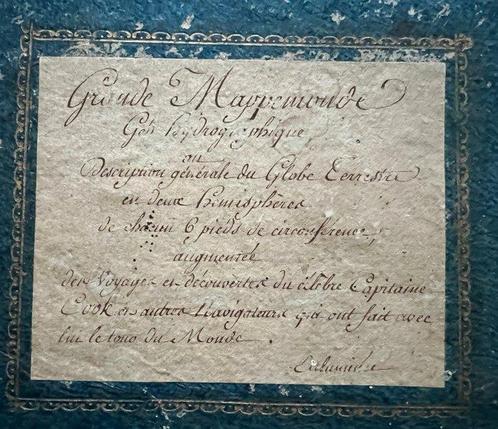 Grande Mappemonde
Géo hydrographique,
ou
Description générale du Globe Terrestre
en deux hémisphères
de chacun 6 pieds de circonférence,
augmentée
des Voyages et découvertes du célèbre Capitaine
Cook et autres Navigateurs qui ont fait avec
lui le tour du Monde.